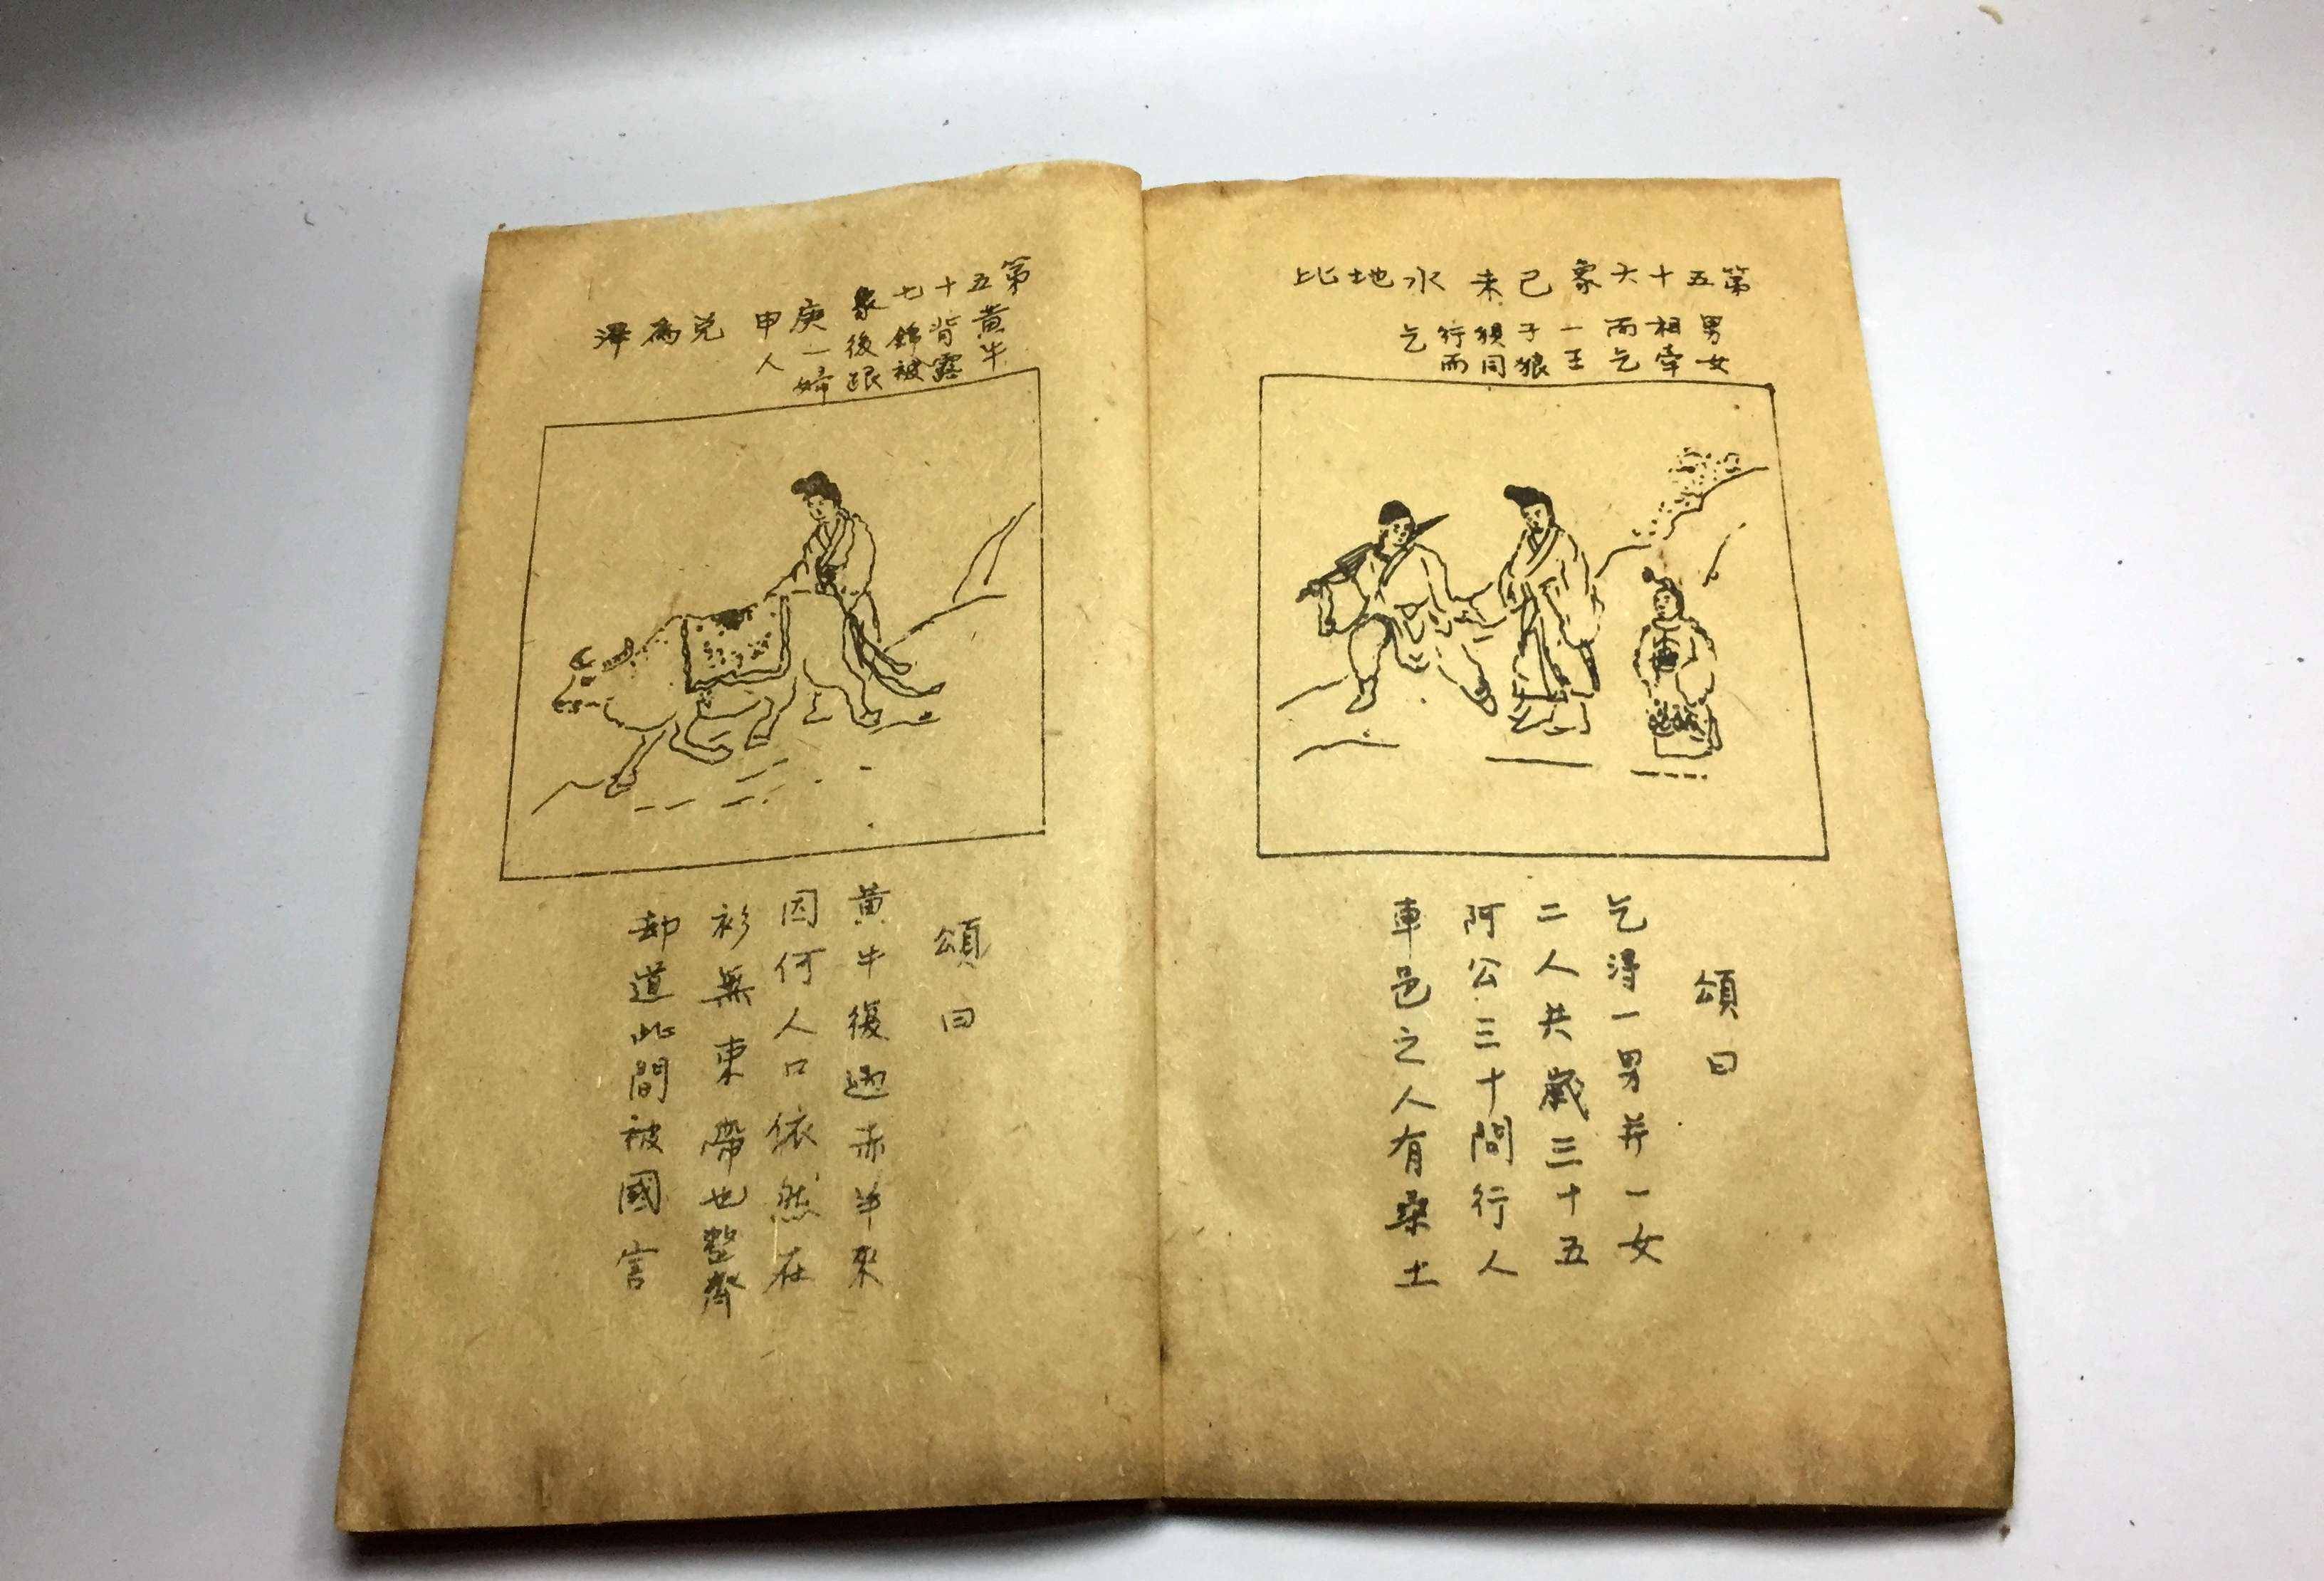 第五十六象己未水地比
男女相牽而乞一王子狼狽同行而乞
頌曰
乞得一男并一女
二人共歲三十五
阿公三十問行人
車邑之人有桑土
第五十七象庚申兌為澤
黃牛背露錦被後跟一婦人
頌曰
黃牛復赤羊來
因何人口依然在
衫無束帶也整齊
却道此間被國